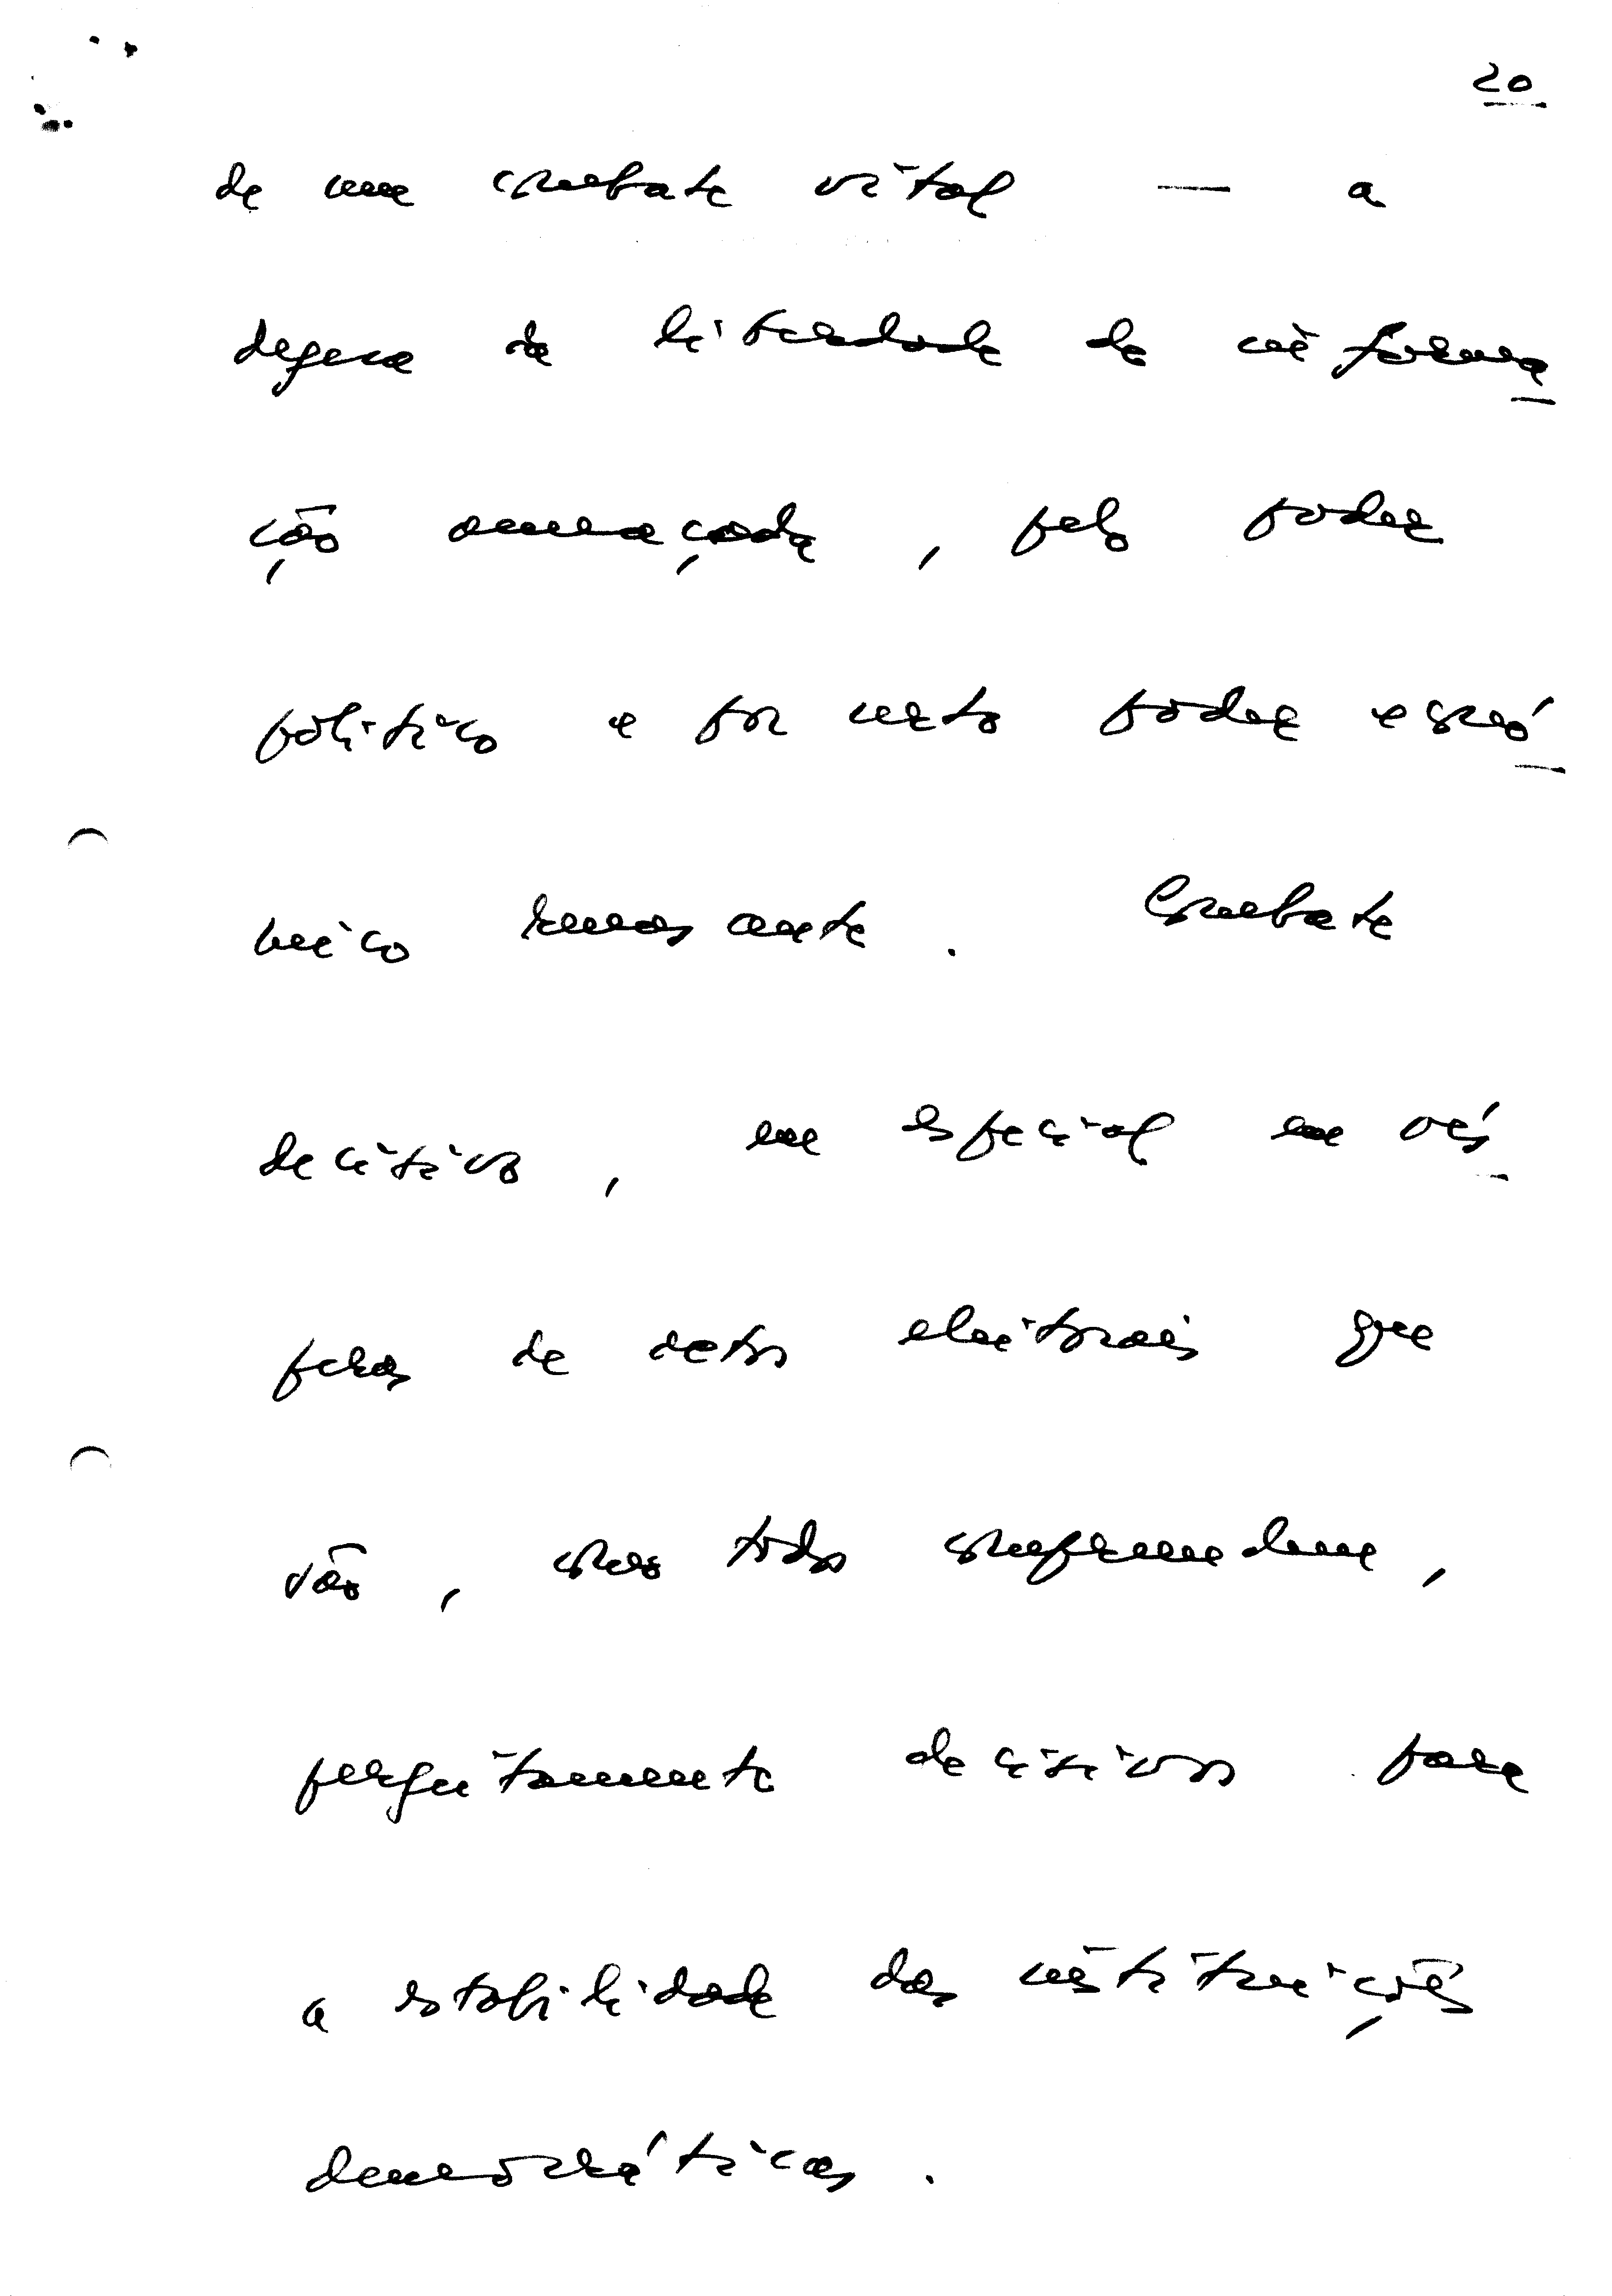 20
de um combate vital — a
defesa da liberdade de informa
ção ameaçada, pelo poder
político e por certo poder econó
mico renascente. Combate
decisivo, em especial em vés
peras de actos eleitorais que
vão, como todos compreendem,
perfeitamente decisivos para
a estabilidade das instituições
democráticas.